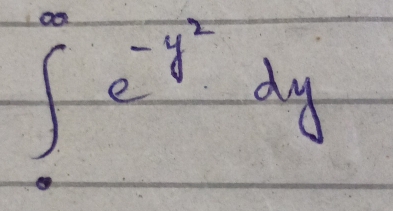 ∫₀^∞ e^{-y²} dy